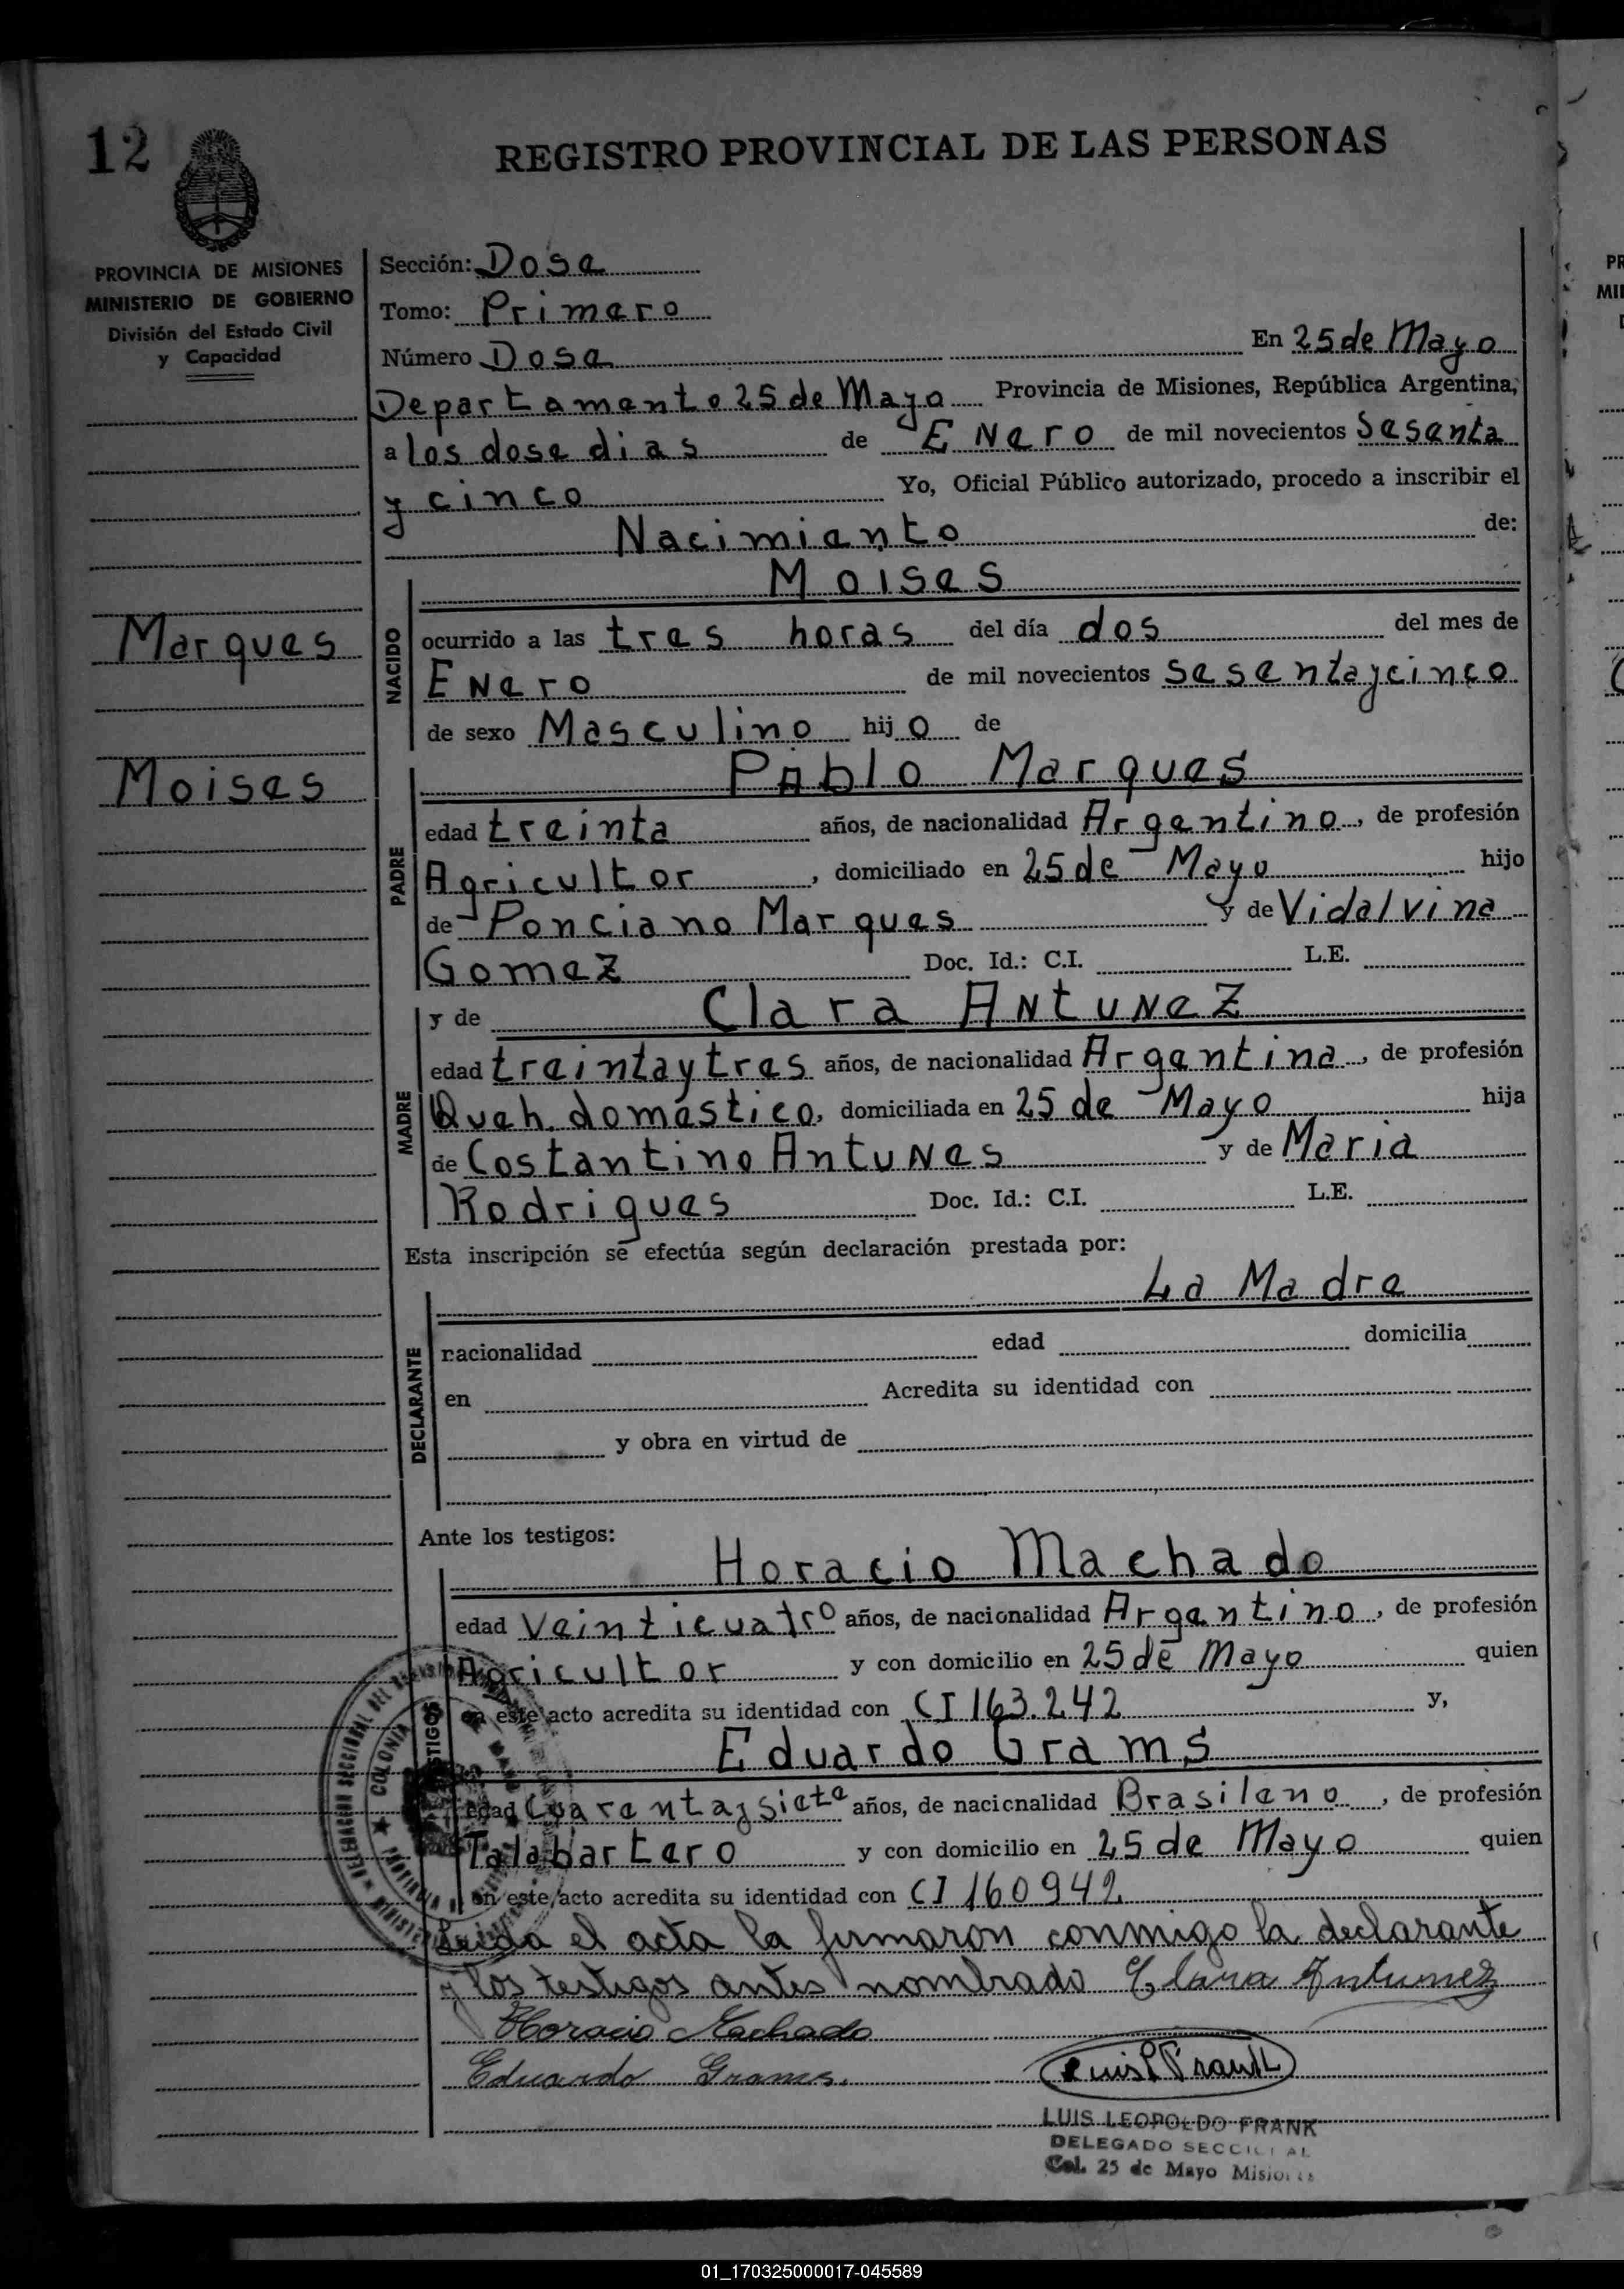 12
REGISTRO PROVINCIAL DE LAS PERSONAS
PROVINCIA DE MISIONES
MINISTERIO DE GOBIERNO
División del Estado Civil
y Capacidad
Marques
Moises
Sección: Dose
Tomo: Primero
Número Dose En 25 de Mayo
Departamento 25 de Mayo Provincia de Misiones, República Argentina,
a los dose dias de Enero de mil novecientos Sesenta
y cinco Yo, Oficial Público autorizado, procedo a inscribir el
Nacimiento de:
Moises
NACIDO
ocurrido a las tres horas del día dos del mes de
Enero de mil novecientos sesentaycinco
de sexo Masculino hijo de
Pablo Marques
PADRE
edad treinta años, de nacionalidad Argentino, de profesión
Agricultor, domiciliado en 25 de Mayo hijo
de Ponciano Marques y de Vidalvina
Gomez Doc. Id.: C.I. L.E.
y de Clara Antunez
MADRE
edad treintaytres años, de nacionalidad Argentina, de profesión
Queh. doméstico, domiciliada en 25 de Mayo hija
de Costantino Antunes y de Maria
Rodrigues Doc. Id.: C.I. L.E.
Esta inscripción se efectúa según declaración prestada por:
La Madre
DECLARANTE
nacionalidad edad domicilia
en Acredita su identidad con
y obra en virtud de
Ante los testigos:
Horacio Machado
edad Veinticuatro años, de nacionalidad Argentino, de profesión
Agricultor y con domicilio en 25 de Mayo quien
en este acto acredita su identidad con CI 163.242 y,
Eduardo Grams
edad Cuarentaysiete años, de nacionalidad Brasileno, de profesión
Talabartero y con domicilio en 25 de Mayo quien
en este acto acredita su identidad con CI 160942
Leida el acta la firmaron conmigo la declarante
y los testigos antes nombrado Clara Antunez
Horacio Machado
Eduardo Grams. Luis L Frank
LUIS LEOPOLDO FRANK
DELEGADO SECCIONAL
Col. 25 de Mayo Misiones
COLONIA
01_170325000017-045589